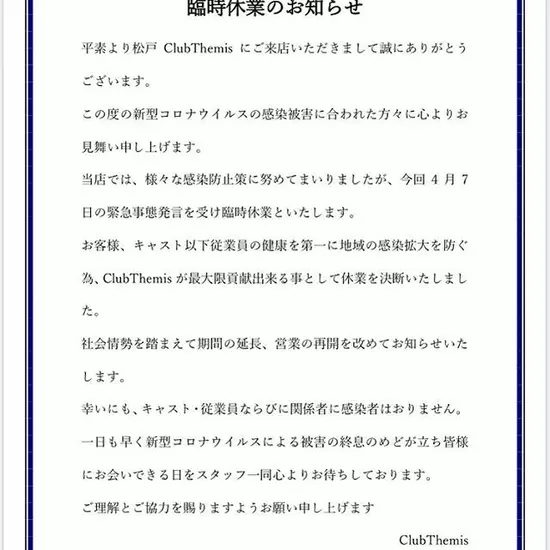 臨時休業のお知らせ
平素より松戸 ClubThemis にご来店いただきまして誠にありがとう
ございます。
この度の新型コロナウイルスの感染被害に合われた方々に心よりお
見舞い申し上げます。
当店では、様々な感染防止策に努めてまいりましたが、今回 4 月 7
日の緊急事態発言を受け臨時休業といたします。
お客様、キャスト以下従業員の健康を第一に地域の感染拡大を防ぐ
為、ClubThemis が最大限貢献出来る事として休業を決断いたしまし
た。
社会情勢を踏まえて期間の延長、営業の再開を改めてお知らせいた
します。
幸いにも、キャスト・従業員ならびに関係者に感染者はおりません。
一日も早く新型コロナウイルスによる被害の終息のめどが立ち皆様
にお会いできる日をスタッフ一同心よりお待ちしております。
ご理解とご協力を賜りますようお願い申し上げます
ClubThemis